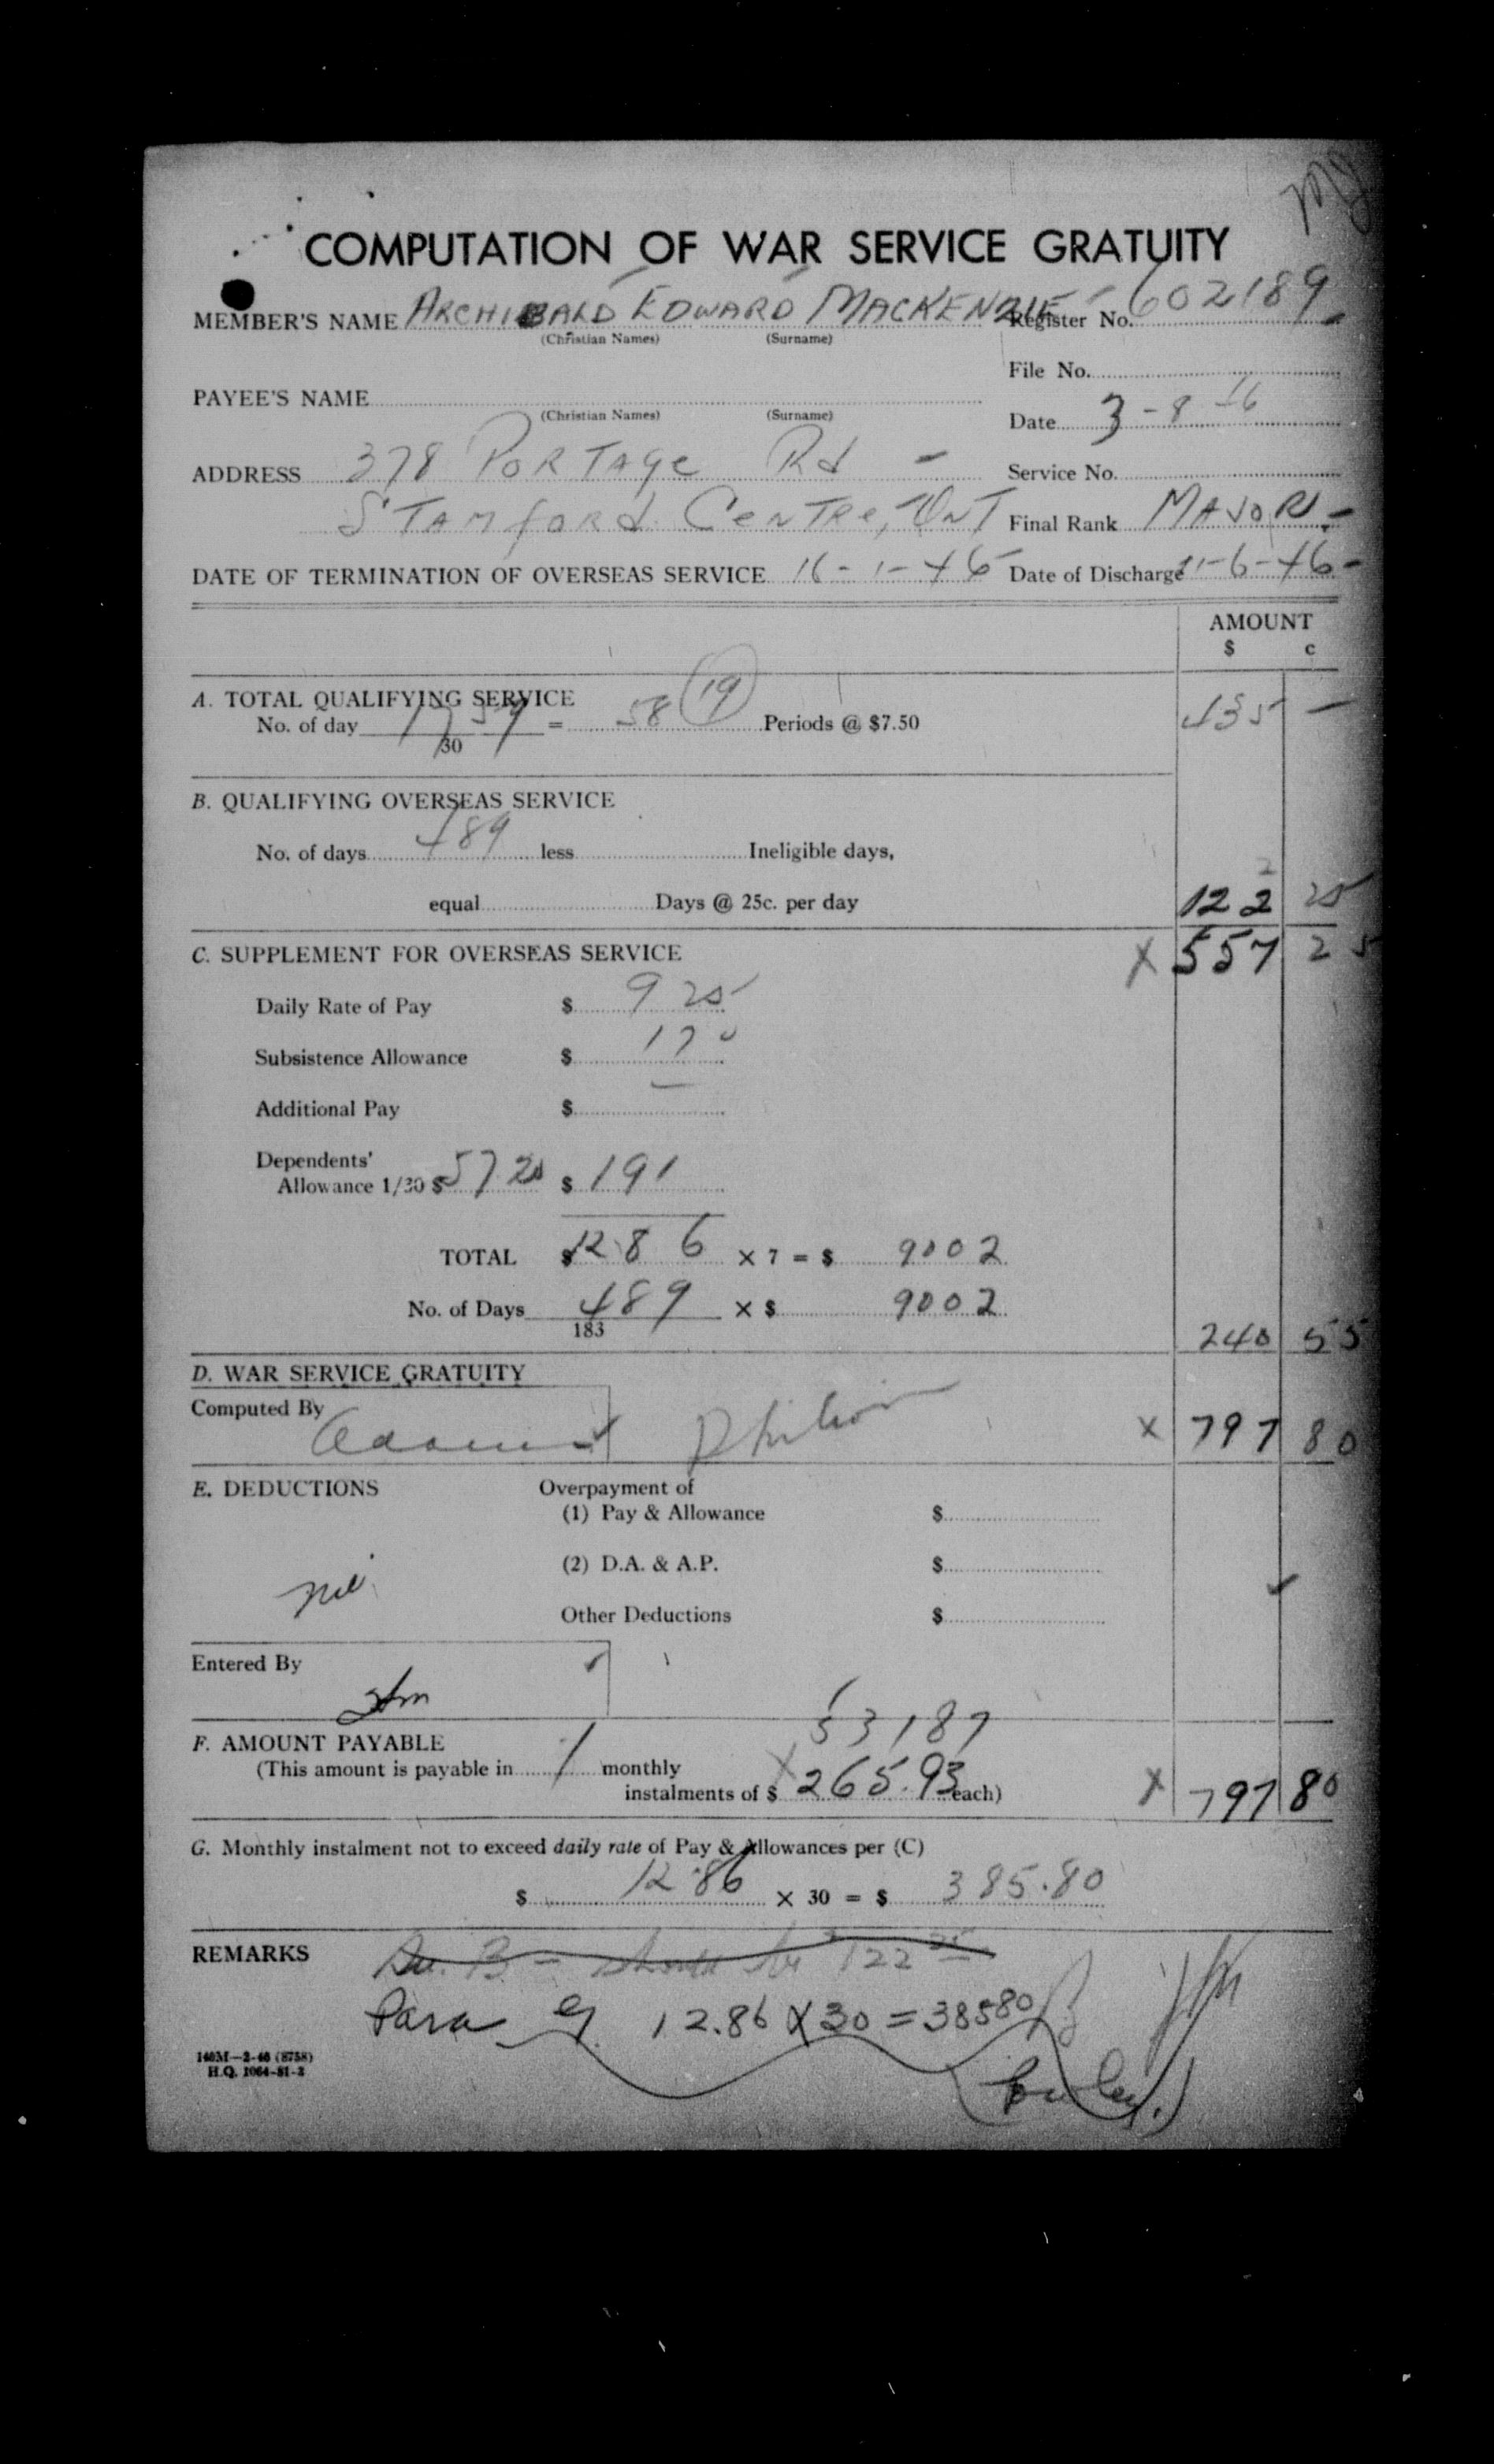 COMPUTATION OF WAR SERVICE GRATUITY
MEMBER'S NAME ARCHIBALD EDWARD MACKENZIE Register No. 602189
(Christian Names) (Surname)
File No.
PAYEE'S NAME
(Christian Names) (Surname)
Date 3-8-46
ADDRESS 378 PORTAGE Rd - Service No.
STAMFORD CENTRE, ONT Final Rank MAJOR -
DATE OF TERMINATION OF OVERSEAS SERVICE 16-1-46 Date of Discharge 11-6-46 -
AMOUNT
$ c
A. TOTAL QUALIFYING SERVICE
No. of day 1759 = 58 (19) Periods @ $7.50 435 —
/30
B. QUALIFYING OVERSEAS SERVICE
No. of days 489 less Ineligible days,
equal Days @ 25c. per day 122 25
C. SUPPLEMENT FOR OVERSEAS SERVICE X 557 25
Daily Rate of Pay $ 9 25
Subsistence Allowance $ 1 70
Additional Pay $ —
Dependents'
Allowance 1/30 $ 57 20 $ 1 91
TOTAL $ 12 86 × 7 = $ 90 02
No. of Days 489 × $ 90 02
183
240 55
D. WAR SERVICE GRATUITY
Computed By
X 797 80
E. DEDUCTIONS Overpayment of
(1) Pay & Allowance $
(2) D.A. & A.P. $
nil
Other Deductions $
Entered By
531 87
F. AMOUNT PAYABLE
(This amount is payable in 1 monthly
instalments of $ X 265.93 each) X 797 80
G. Monthly instalment not to exceed daily rate of Pay & Allowances per (C)
$ 12.86 × 30 = $ 385.80
REMARKS B - should be 122 25
Para G 12.86 X 30 = 385 80
140M—2-46 (8758)
H.Q. 1064-81-2